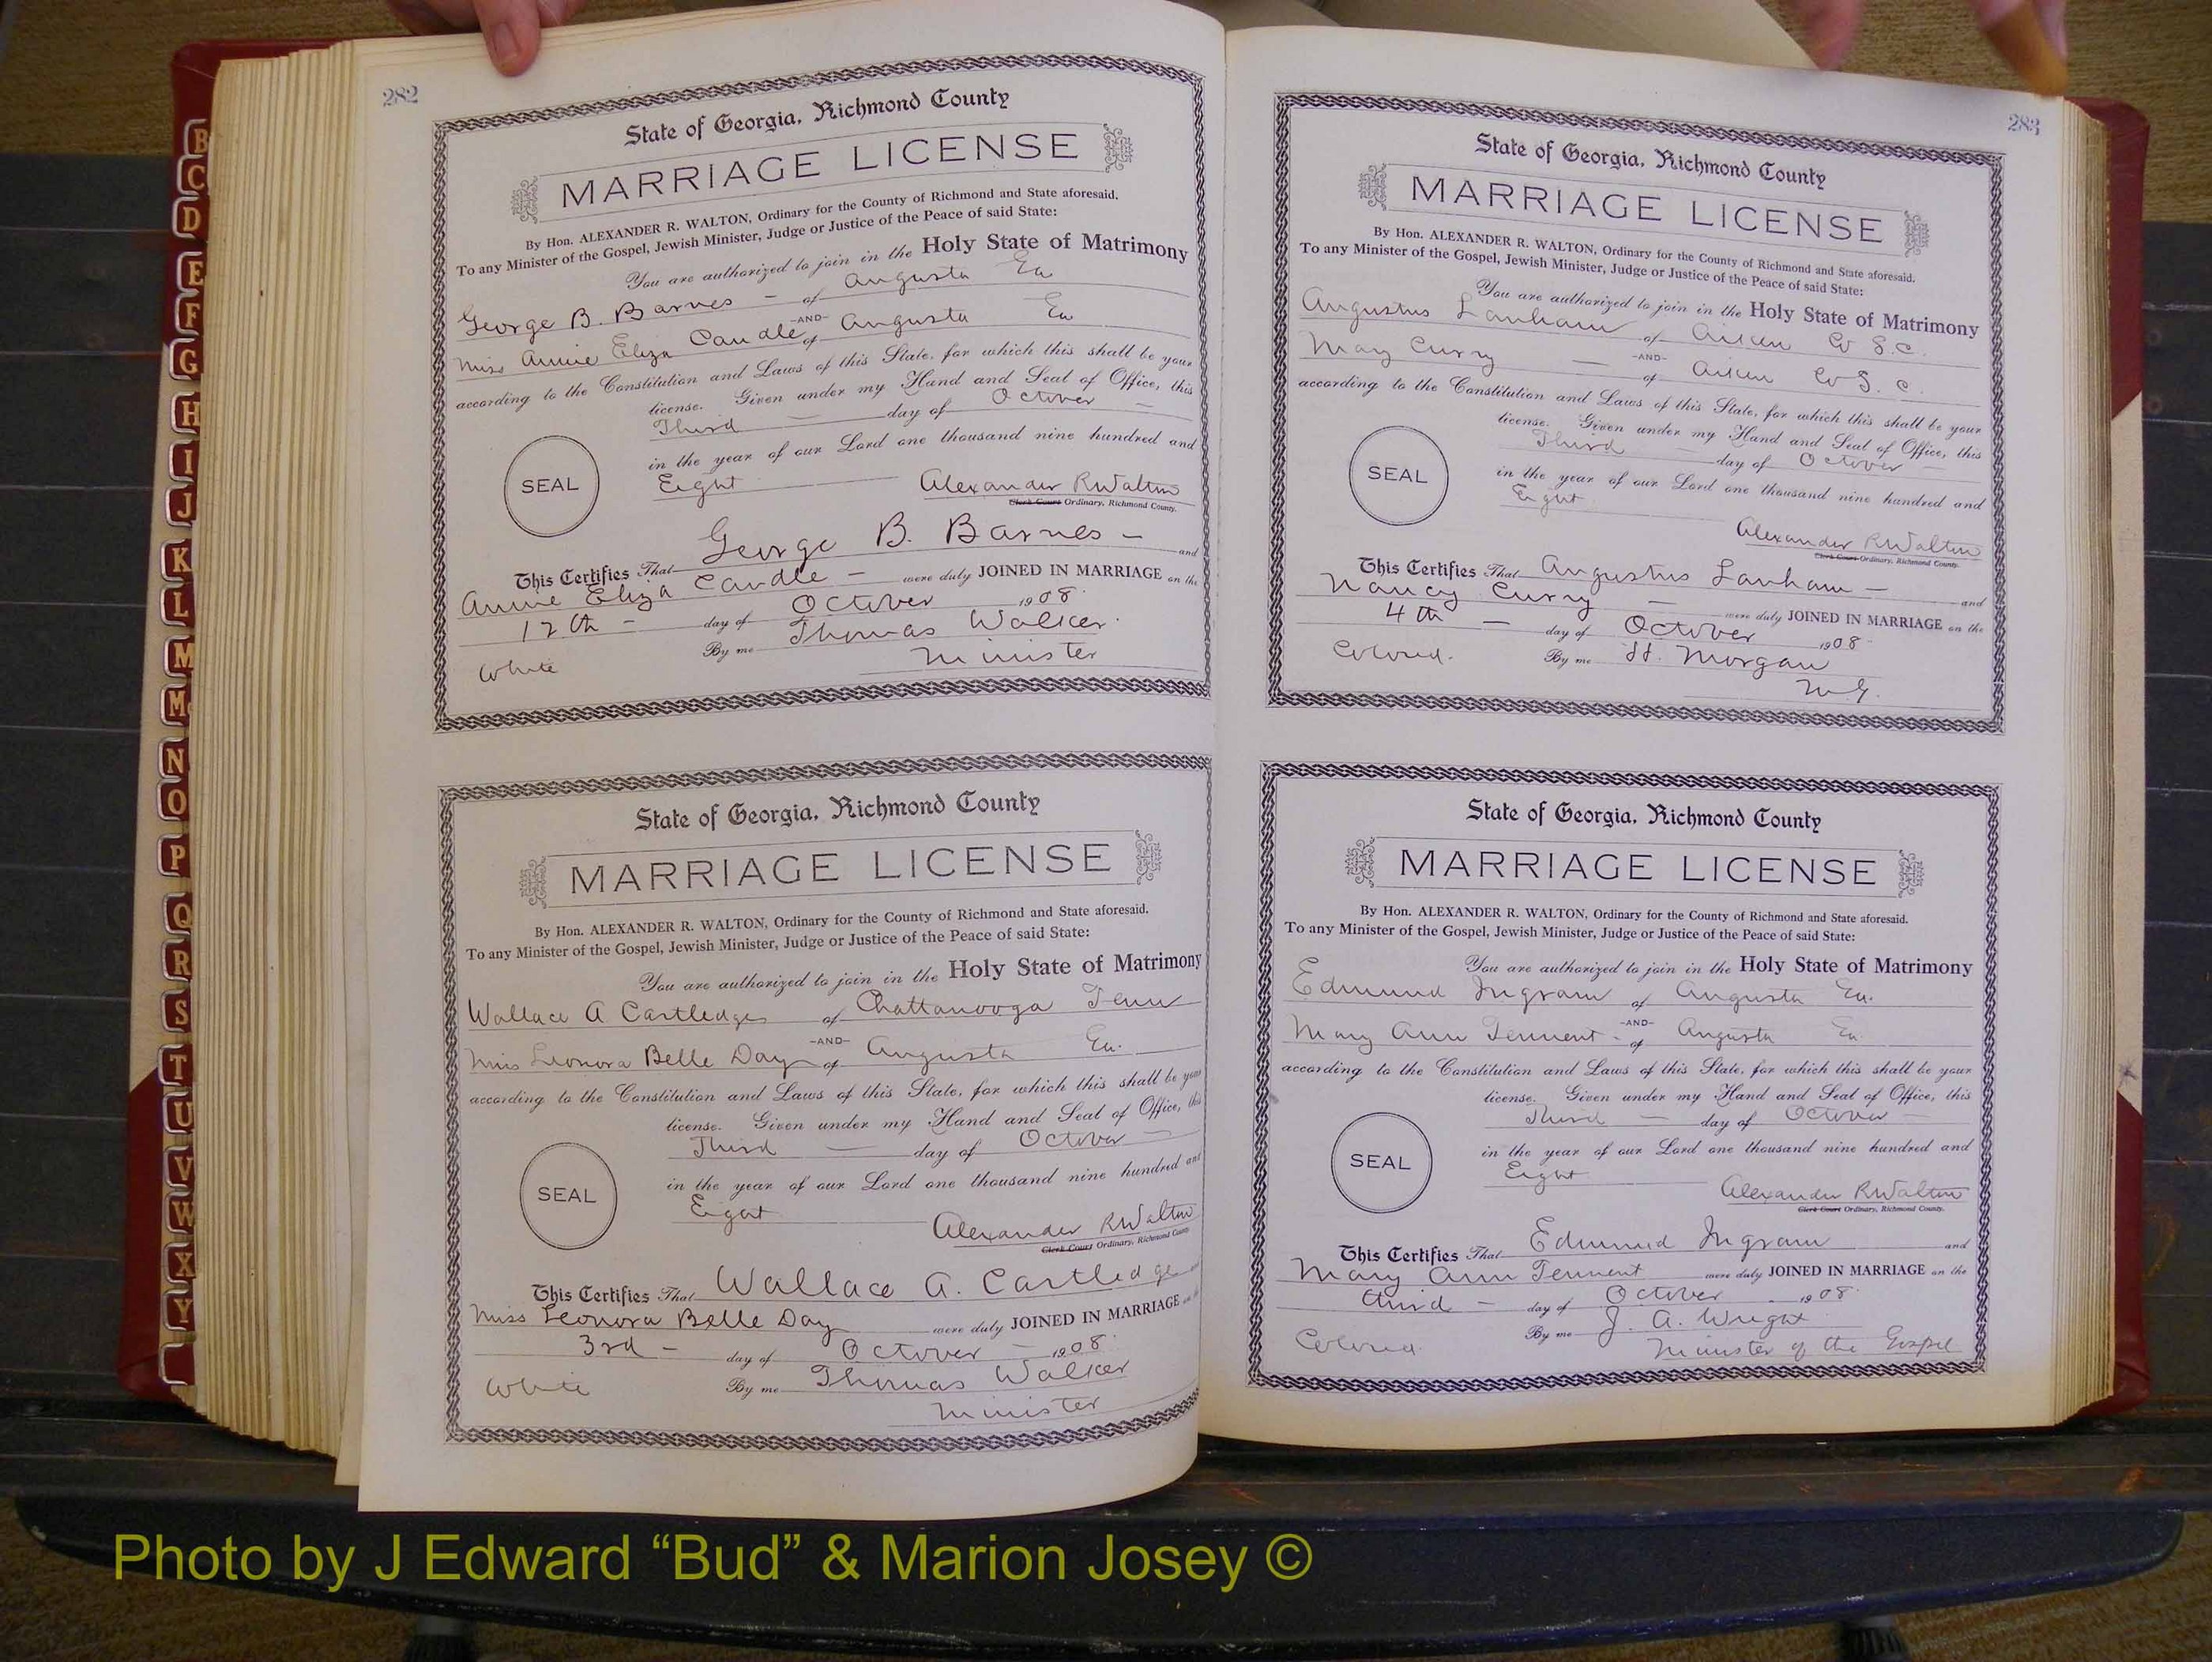 282
State of Georgia, Richmond County
MARRIAGE LICENSE
By Hon. ALEXANDER R. WALTON, Ordinary for the County of Richmond and State aforesaid.
To any Minister of the Gospel, Jewish Minister, Judge or Justice of the Peace of said State:
You are authorized to join in the Holy State of Matrimony
George B. Barnes - of Augusta Ga
-AND-
Miss Annie Eliza Caudle of Augusta Ga
according to the Constitution and Laws of this State, for which this shall be your
license. Given under my Hand and Seal of Office, this
Third — day of October —
in the year of our Lord one thousand nine hundred and
SEAL
Eight
Alexander R Walton
Clerk Court Ordinary, Richmond County.
This Certifies That George B. Barnes - and
Annie Eliza Caudle - were duly JOINED IN MARRIAGE on the
12th - day of October 1908.
By me Thomas Walker.
White Minister
State of Georgia, Richmond County
MARRIAGE LICENSE
By Hon. ALEXANDER R. WALTON, Ordinary for the County of Richmond and State aforesaid.
To any Minister of the Gospel, Jewish Minister, Judge or Justice of the Peace of said State:
You are authorized to join in the Holy State of Matrimony
Wallace A Cartledge of Chattanooga Tenn
-AND-
Miss Leonora Belle Day of Augusta Ga.
according to the Constitution and Laws of this State, for which this shall be your
license. Given under my Hand and Seal of Office, this
Third — day of October —
in the year of our Lord one thousand nine hundred and
SEAL
Eight
Alexander R Walton
Clerk Court Ordinary, Richmond County
This Certifies That Wallace A. Cartledge and
Miss Leonora Belle Day were duly JOINED IN MARRIAGE on the
3rd - day of October - 1908.
White By me Thomas Walker
Minister
283
State of Georgia, Richmond County
MARRIAGE LICENSE
By Hon. ALEXANDER R. WALTON, Ordinary for the County of Richmond and State aforesaid.
To any Minister of the Gospel, Jewish Minister, Judge or Justice of the Peace of said State:
You are authorized to join in the Holy State of Matrimony
Augustus Lanham of Aiken Co S.C.
-AND-
May Curry — of Aiken Co S. C.
according to the Constitution and Laws of this State, for which this shall be your
license. Given under my Hand and Seal of Office, this
Third — day of October —
in the year of our Lord one thousand nine hundred and
SEAL
Eight
Alexander R Walton
Clerk Court Ordinary, Richmond County.
This Certifies That Augustus Lanham - and
Nancy Curry — were duly JOINED IN MARRIAGE on the
4th — day of October 1908
Colored. By me H. Morgan
M.G.
State of Georgia, Richmond County
MARRIAGE LICENSE
By Hon. ALEXANDER R. WALTON, Ordinary for the County of Richmond and State aforesaid.
To any Minister of the Gospel, Jewish Minister, Judge or Justice of the Peace of said State:
You are authorized to join in the Holy State of Matrimony
Edmund Ingram of Augusta Ga.
-AND-
Mary Ann Tennent - of Augusta Ga.
according to the Constitution and Laws of this State, for which this shall be your
license. Given under my Hand and Seal of Office, this
Third — day of October —
in the year of our Lord one thousand nine hundred and
SEAL
Eight
Alexander R Walton
Clerk Court Ordinary, Richmond County.
This Certifies That Edmund Ingram and
Mary Ann Tennent were duly JOINED IN MARRIAGE on the
third - day of October - 1908.
By me J. A. Wright
Colored Minister of the Gospel
B
C
D
E
F
G
H
I
J
K
L
M
Mc
N
O
P
Q
R
S
T
U
V
W
X
Y
Photo by J Edward “Bud” & Marion Josey ©